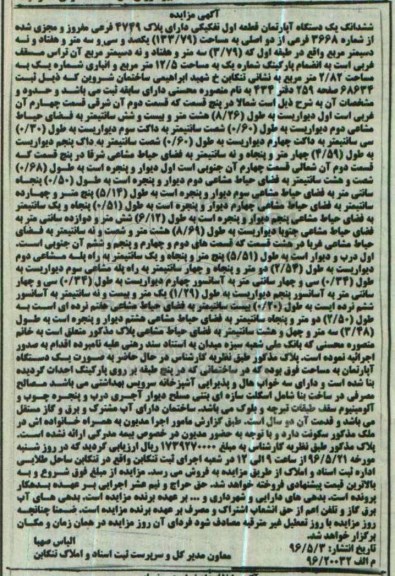 آگهی مزایده
ششدانگ یک دستگاه آپارتمان قطعه اول تفکیکی دارای پلاک ۴۷۴۹ فرعی مفروز و مجزی شده
از شماره ۳۶۶۸ فرعی از دو اصلی به مساحت (۱۳۳/۷۹) یکصد و سی و سه متر و هفتاد و نه
دسیمتر مربع واقع در طبقه اول که (۳/۷۹) سه متر و هفتاد و نه دسیمتر مربع آن تراس مسقف
غربی است به انضمام پارکینگ شماره یک به مساحت ۱۲/۵ متر مربع و انباری شماره یک به
مساحت ۲/۸۲ متر مربع به نشانی تنکابن خ شهید ابراهیمی ساختمان شروین که ذیل ثبت
۶۸۶۳۴ صفحه ۲۵۹ دفتر ۴۳۳ به نام منصوره محسنی دارای سابقه ثبت می باشد و حدود و
مشخصات آن به شرح ذیل است شمالا در پنج قسمت که قسمت دوم آن شرقی قسمت چهارم آن
غربی است اول دیواریست به طول (۸/۲۶) هشت متر و بیست و شش سانتیمتر به فضای حیاط
مشاعی دوم دیواریست به طول (۰/۶۰) شصت سانتیمتر به داکت سوم دیواریست به طول (۰/۳۰)
سی سانتیمتر به داکت چهارم دیواریست به طول (۰/۶۰) شصت سانتیمتر به داک پنجم دیواریست
به طول (۴/۵۹) چهار متر و پنجاه و نه سانتیمتر به فضای حیاط مشاعی شرقا در پنج قسمت که
قسمت دوم آن شمالی قسمت چهارم آن جنوبی است اول دیوار و پنجره است به طول (۰/۶۸)
شصت و هشت سانتیمتر به فضای حیاط مشاعی دوم دیوار و پنجره است به طول (۰/۵۰) پنجاه
سانتی متر به فضای حیاط مشاعی سوم دیوار و پنجره است به طول (۵/۱۴) پنج متر و چهارده
سانتیمتر به فضای حیاط مشاعی چهارم دیوار و پنجره است به طول (۰/۵۱) پنجاه و یک سانتیمتر
به فضای حیاط مشاعی پنجم دیوار و پنجره است به طول (۶/۱۲) شش متر و دوازده سانتی متر به
فضای حیاط مشاعی جنوبا دیواریست به طول (۸/۶۹) هشت متر و شصت و نه سانتیمتر به فضای
حیاط مشاعی غربا در هشت قسمت که قسمت های دوم و چهارم و پنجم و ششم آن جنوبی است.
اول درب و دیوار است به طول (۵/۵۱) پنج متر و پنجاه و یک سانتیمتر به راه پله مشاعی دوم
دیواریست به طول (۲/۵۴) دو متر و پنجاه و چهار سانتیمتر به راه پله مشاعی سوم دیواریست به
طول (۰/۳۴) سی و چهار سانتی متر به آسانسور چهارم دیواریست به طول (۰/۳۴) سی و چهار
سانتی متر به آسانسور پنجم دیواریست به طول (۱/۲۹) یک متر و بیست و نه سانتیمتر به آسانسور
ششم نرده است به طول (۰/۲۰) بیست سانتیمتر به فضای حیاط مشاعی هفتم نرده ای است به
طول (۲/۵۰) دو متر و پنجاه سانتیمتر به فضای حیاط مشاعی هشتم دیوار و پنجره است به طول
(۳/۴۸) سه متر و چهل و هشت سانتیمتر به فضای حیاط مشاعی پلاک مذکور متعلق است به خانم
منصوره محسنی که بانک ملی شعبه سبزه میدان به استناد سند رهنی علیه نامبرده اقدام به صدور
اجرائیه نموده است. پلاک مذکور طبق نظریه کارشناس در حال حاضر به صورت یک دستگاه
آپارتمان به مساحت فوق بوده که در ساختمانی که در پنج طبقه بر روی پارکینگ احداث گردیده
بنا شده است و دارای سه خواب هال و پذیرایی آشپزخانه سرویس بهداشتی می باشد مصالح
مصرفی در ساخت بنا شامل اسکلت سازه ای بتنی مسلح دیوار آجری درب و پنجره چوب و
آلومینیوم سقف طبقات تیرچه و بلوک می باشد. ساختمان دارای آب مشترک و برق و گاز مستقل
می باشد و قدمت آن دو سال است. طبق گزارش مامور اجرا مدیون به همراه خانواده اش در
ملک مذکور سکونت دارد و با توجه به حضور مدیون در خصوص بیمه مدرکی ارائه نشده است.
پلاک مذکور طبق نظریه کارشناسی به مبلغ ۱۷۳۹۲۷۰۰۰۰ ریال ارزیابی گردید که در روز شنبه
مورخه ۹۶/۵/۲۱ از ساعت ۹ الی ۱۲ در شعبه اجرای ثبت تنکابن واقع در تنکابن ساحل طلایی
اداره ثبت اسناد و املاک از طریق مزایده به فروش می رسد. مزایده از مبلغ فوق شروع و به
بالاترین قیمت پیشنهادی فروخته خواهد شد. حق حراج و نیم عشر اجرایی بر عهده بدهکار
پرونده است. بدهی های دارایی و شهرداری و ... بر عهده برنده مزایده است. بدهی های آب
برق گاز و تلفن اعم از حق انشعاب اشتراک و مصرف بر عهده برنده مزایده است. ضمنا چنانچه
روز مزایده با روز تعطیل غیر مترقبه مصادف شود فردای آن روز مزایده در همان زمان و مکان
برگزار خواهد شد.
تاریخ انتشار: ۹۶/۵/۳
الیاس صهبا
م الف ۹۶/۲۰۰۳۲
معاون مدیر کل و سرپرست ثبت اسناد و املاک تنکابن